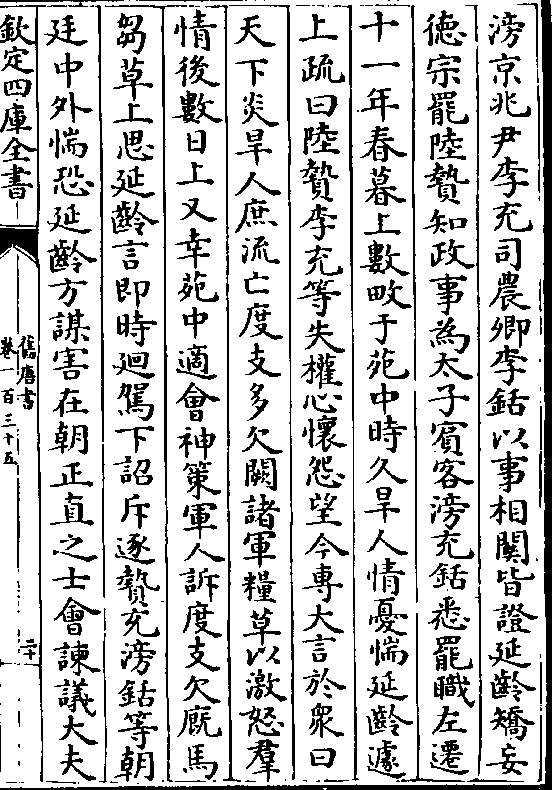 滂京兆尹李充司農卿李銛以事相關皆證延齡矯妄
德宗罷陸贄知政事為太子賓客滂充銛悉罷職左遷
十一年春暮上數畋于苑中時久旱人情憂惴延齡遽
上疏曰陸贄李充等失權心懷怨望今專大言於衆曰
天下炎旱人庶流亡度支多欠闕諸軍糧草以激怒羣
情後數日上又幸苑中適會神策軍人訴度支欠廐馬
芻草上思延齡言即時迴駕下詔斥逐贄充滂銛等朝
廷中外惴恐延齡方謀害在朝正直之士會諫議大夫
欽定四庫全書
舊唐書
卷一百三十五
二十